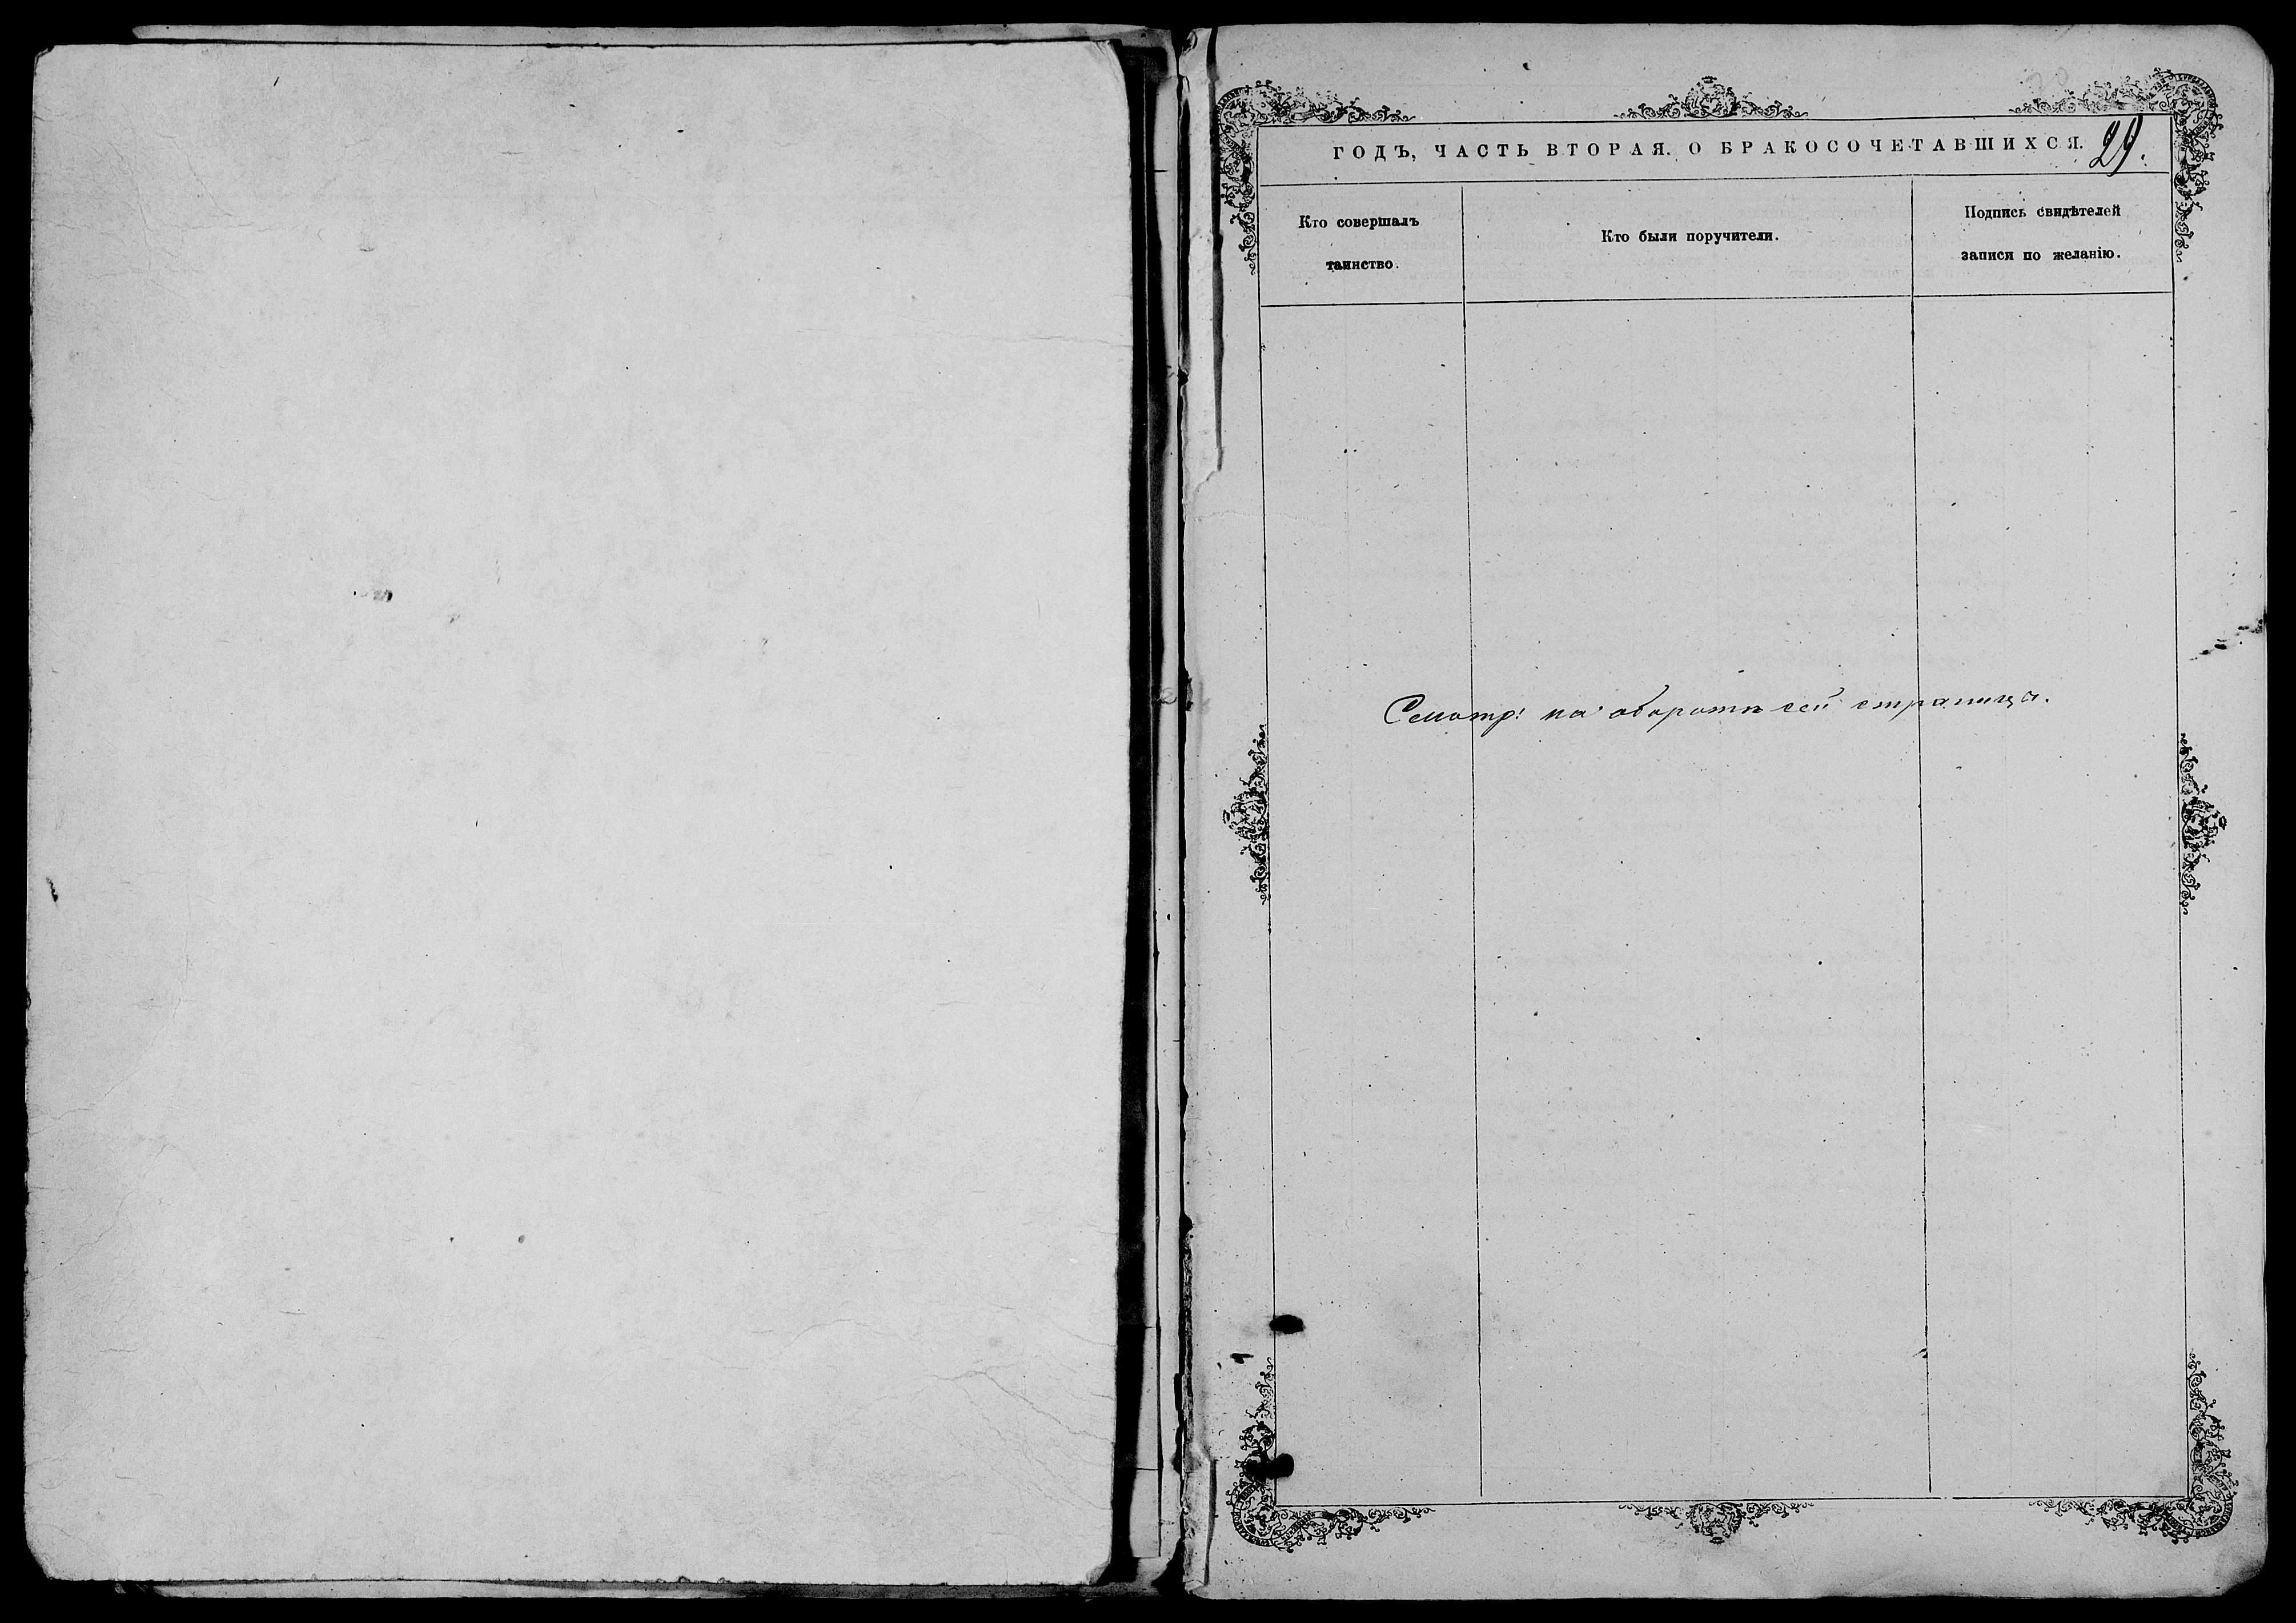 ГОДЪ, ЧАСТЬ ВТОРАЯ. О БРАКОСОЧЕТАВШИХСЯ. 29.
Кто совершалъ
таинство.
Кто были поручители.
Подпись свидѣтелей
записи по желанію.
Смотр: на оборотѣ сей страница.